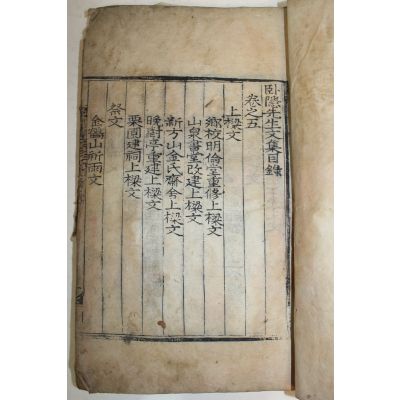 臥隱先生文集目錄
卷之五
上樑文
鄉校明倫堂重修上樑文
山泉書堂改建上樑文
新方山金氏齋舍上樑文
晚對亭重建上樑文
栗園建祠上樑文
祭文
金鶴山祈雨文